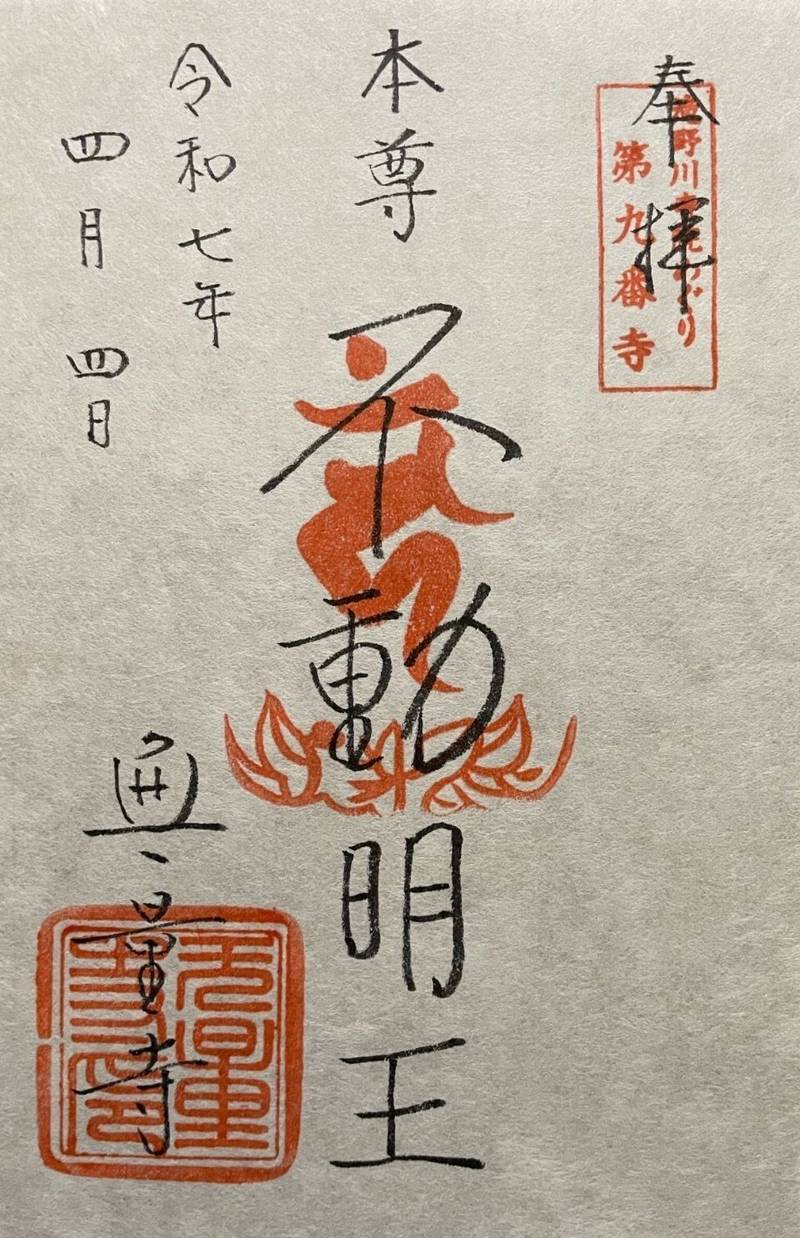 奉拝
野川 めぐり
第九番寺
本尊
不動明王
令和七年
四月四日
無量寺